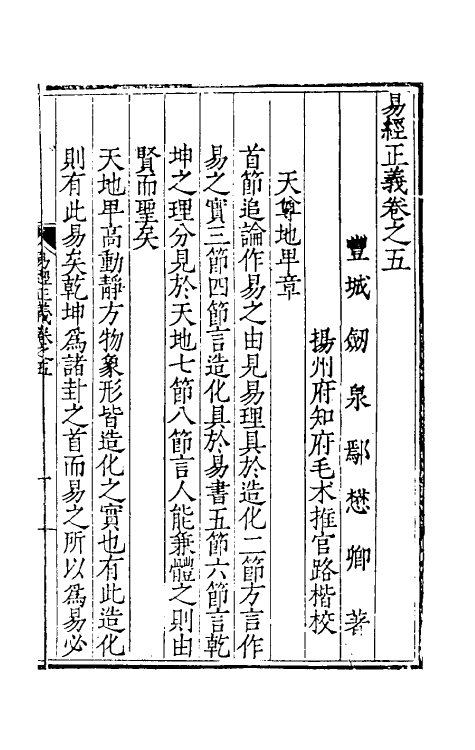 易經正義卷之五
豐城劒泉鄢懋卿著
揚州府知府毛木推官路楷校
天尊地卑章
首節追論作易之由見易理具於造化二節方言作
易之實三節四節言造化具於易書五節六節言乾
坤之理分見於天地七節八節言人能兼體之則由
賢而聖矣
天地卑高動靜方物象形皆造化之實也有此造化
則有此易矣乾坤為諸卦之首而易之所以為易必
易經正義卷之五